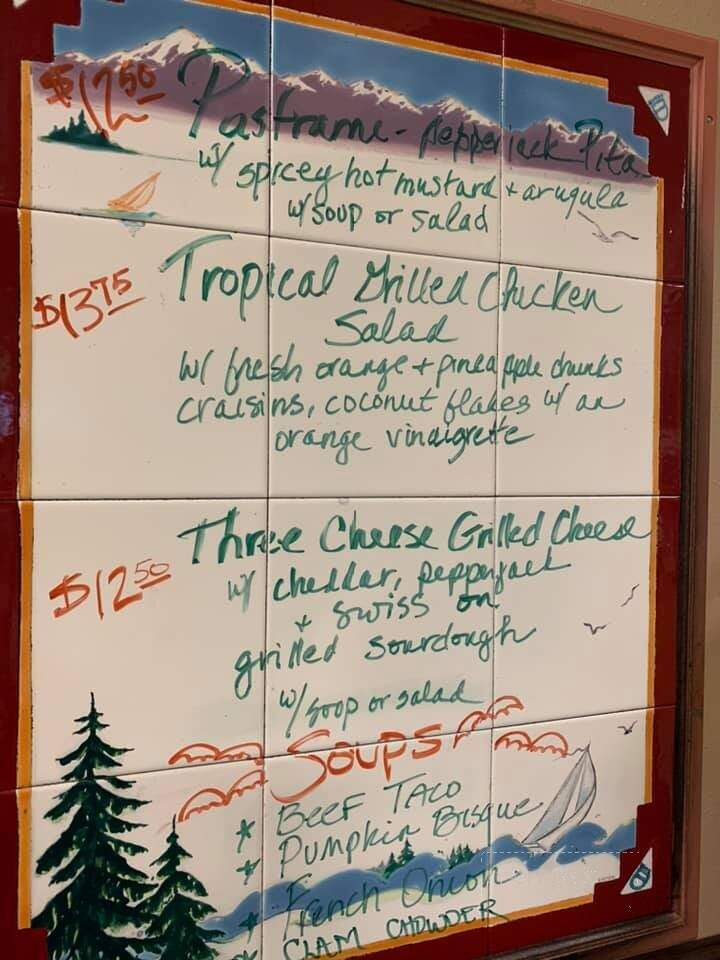 $12.50 Pastrami - pepperjack Pita
w/ spicey hot mustard + arugula
w/ soup or salad
$13.75 Tropical Grilled Chicken
Salad
w/ fresh orange + pineapple chunks
craisins, coconut flakes w/ an
orange vinaigrette
Three Cheese Grilled Cheese
$12.50 w/ cheddar, pepperjack
+ swiss on
grilled sourdough
w/ soop or salad
Soups
* BEEF TACO
* Pumpkin Bisque
* French Onion
* CLAM CHOWDER